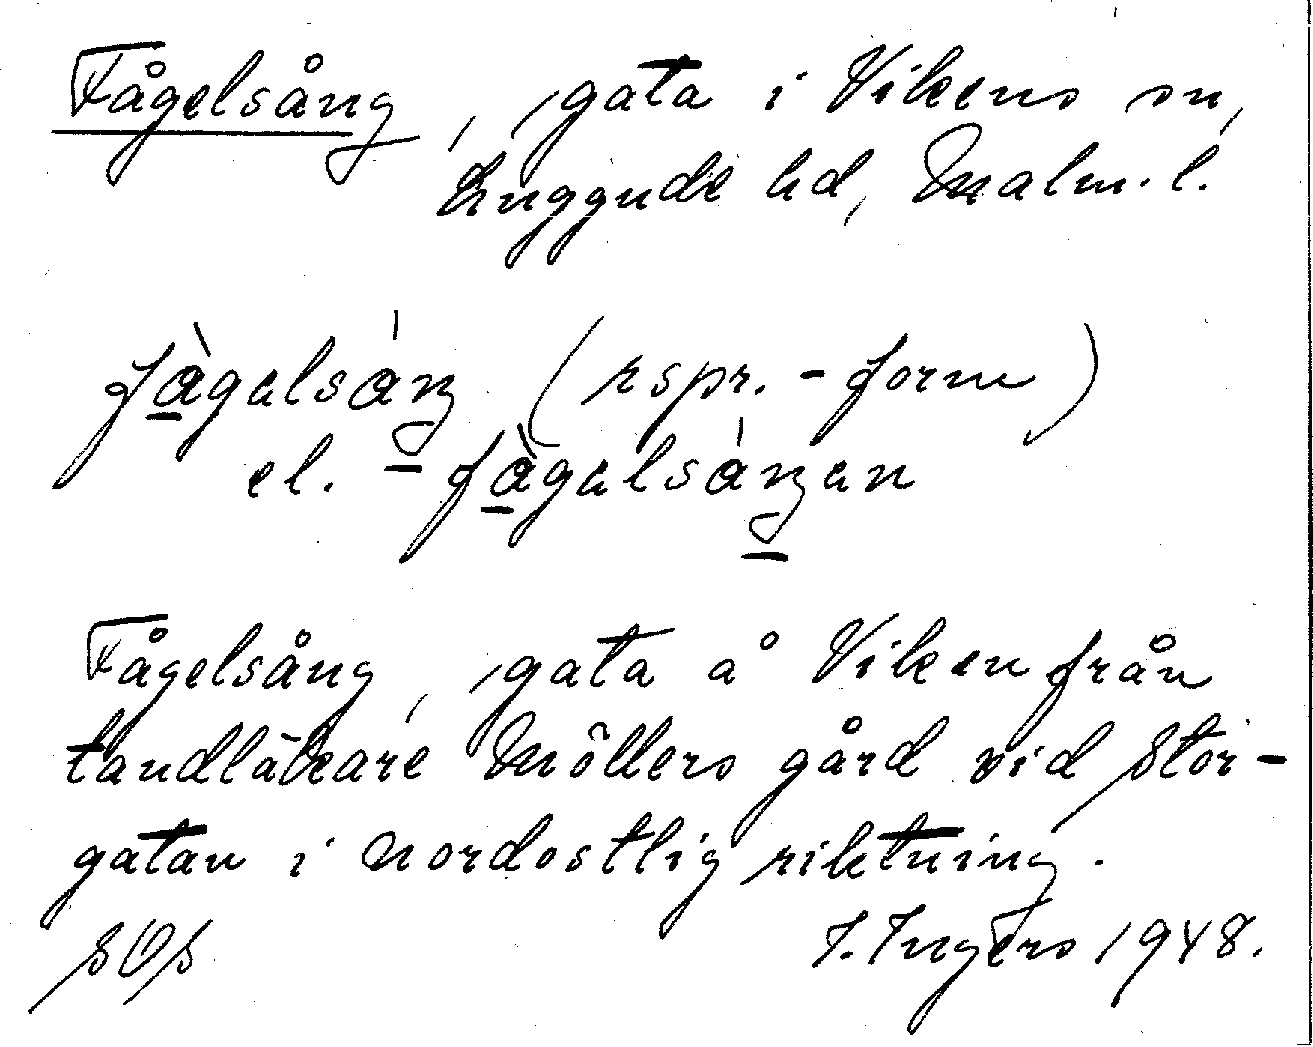 Fågelsång, gata i Vikens sn,
Luggude hd, Malm. l.
fàgəlsáŋ (rspr.-form)
el. fàgəlsáŋən
Fågelsång, gata å Viken från
tandläkare Möllers gård vid Stor-
gatan i nordostlig riktning.
SOS I. Ingers 1948.